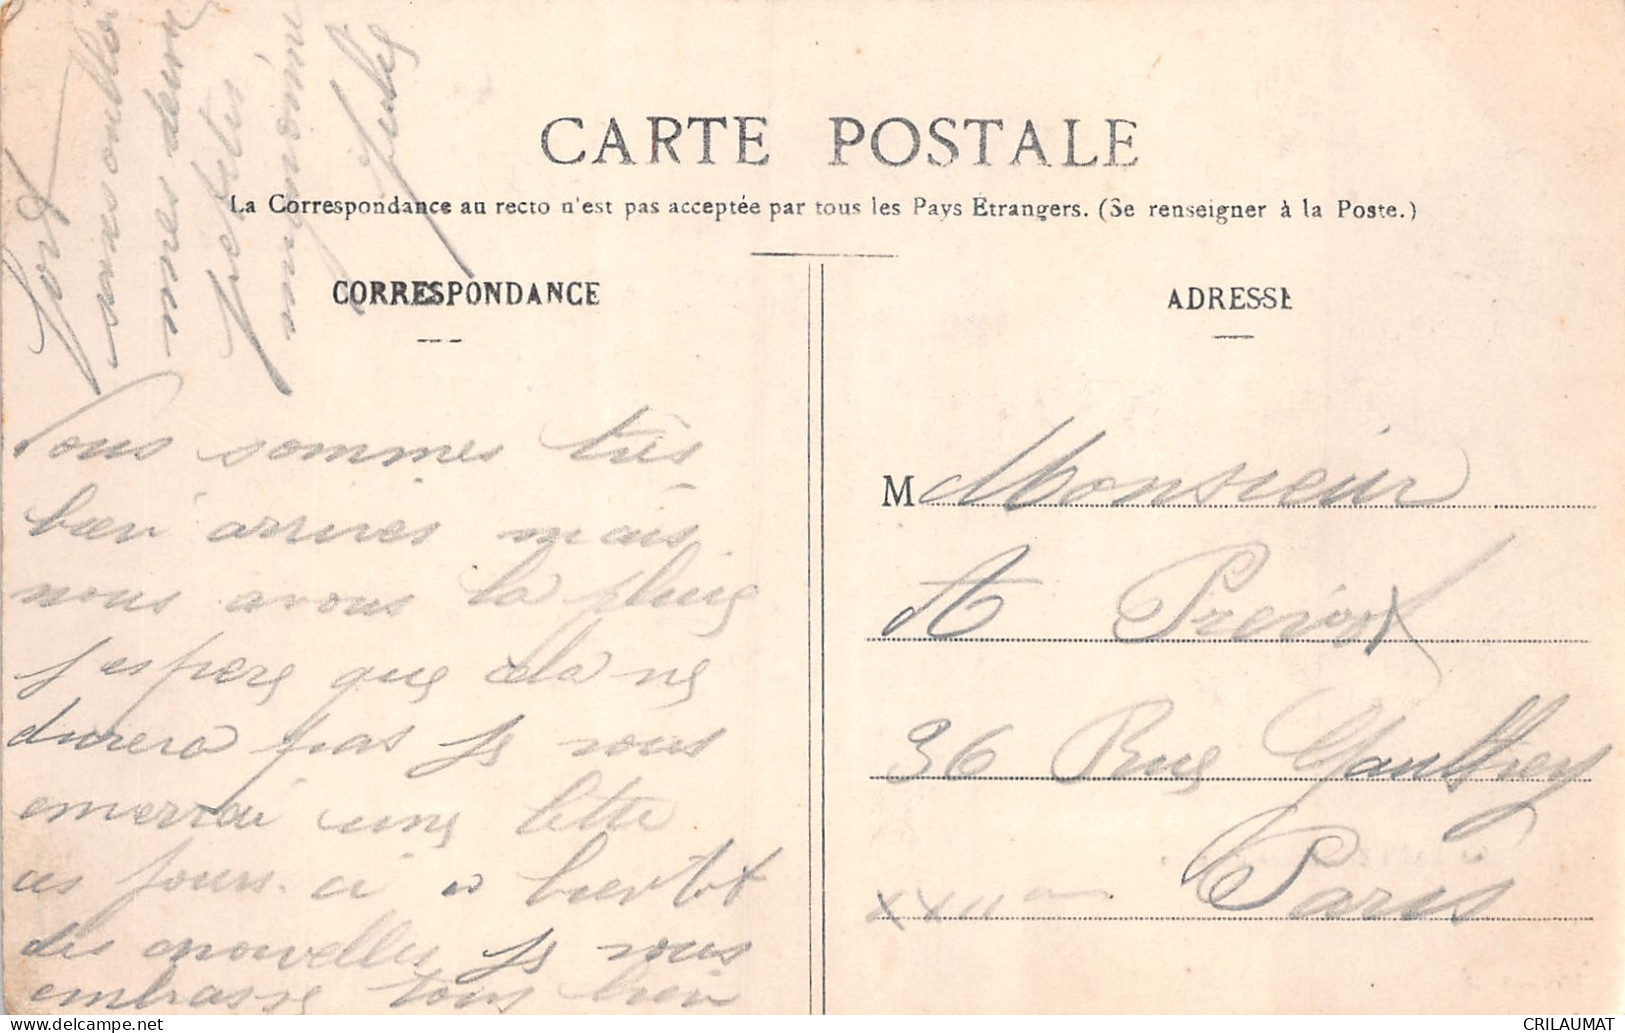 CARTE POSTALE
La Correspondance au recto n'est pas acceptée par tous les Pays Étrangers. (Se renseigner à la Poste.)
CORRESPONDANCE
ADRESSE
Nous sommes très
bien arrives mais
nous avons la pluie
j espere que cela ne
durera pas je vous
enverrai une lettre
ces jours. ci a bientot
des nouvelles je vous
embrasse tous bien
fort
sans oublier
mes deux
petites
mignonne
M Monsieur
A Prevost
36 Rue Gauthey
Paris
CRILAUMAT